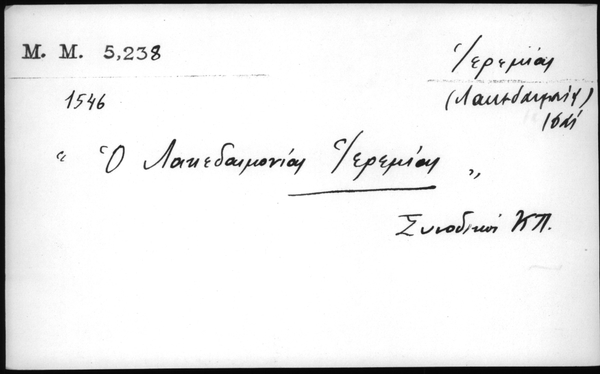 M. M. 5,238
Ἱερεμίας
1546
(Λακεδαιμονίας)
“ Ὁ Λακεδαιμονίας Ἱερεμίας „
Συνοδικοί ΚΠ.